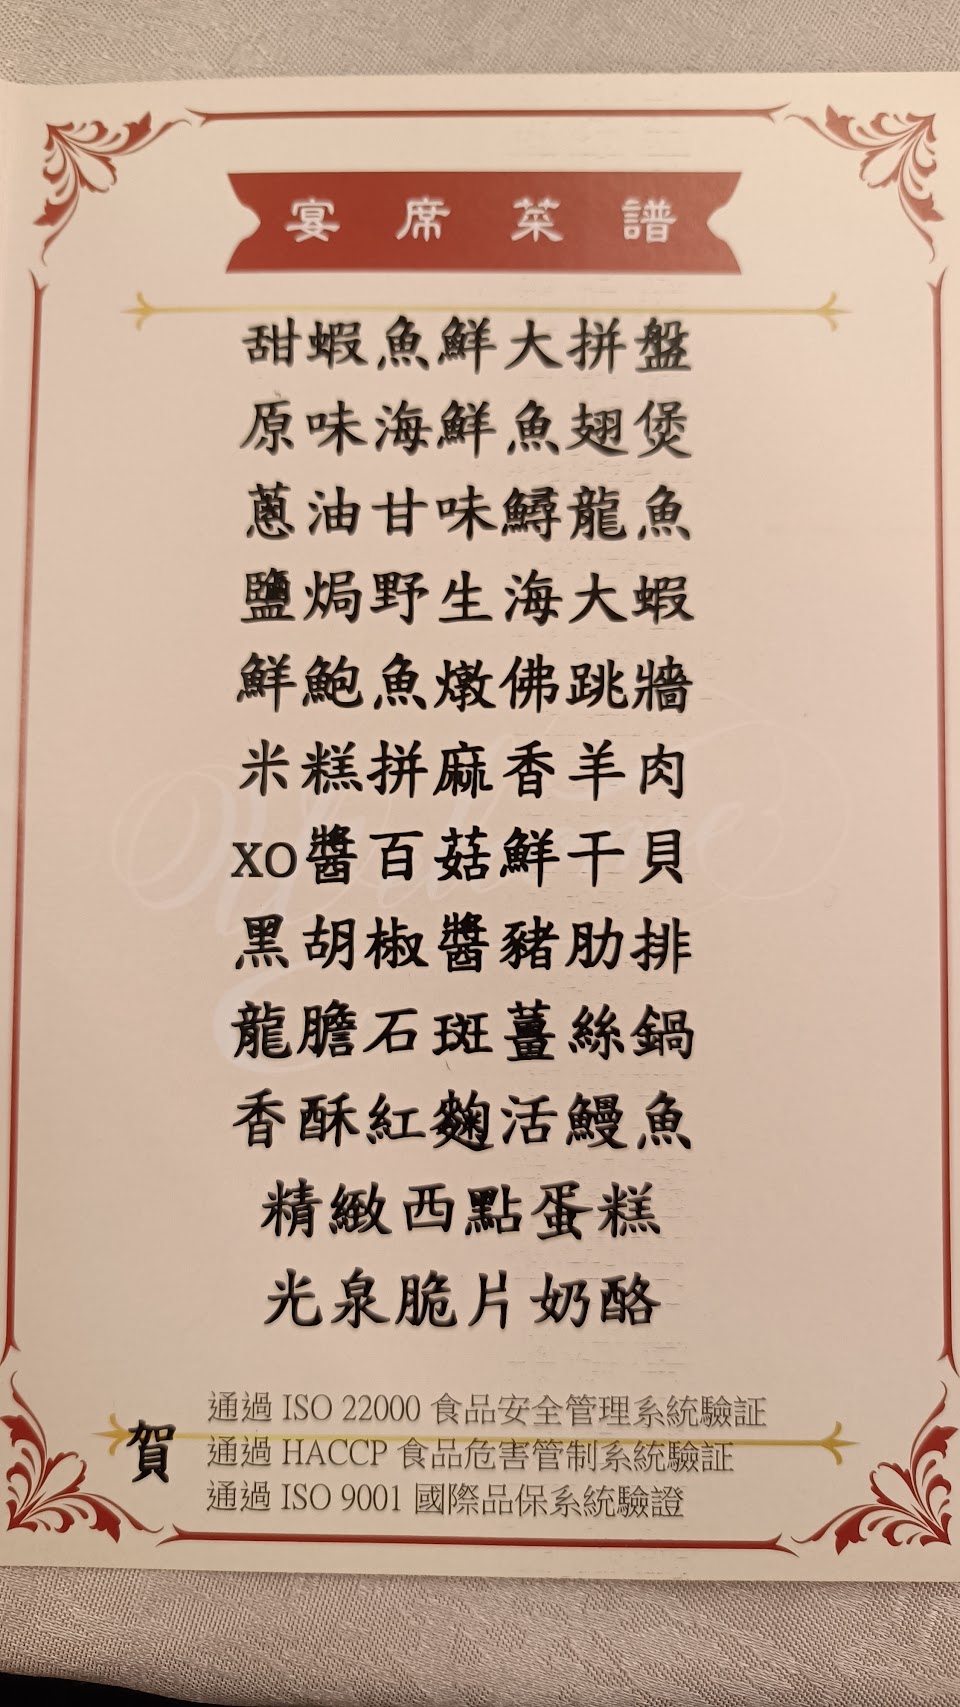 宴席菜譜
甜蝦魚鮮大拼盤
原味海鮮魚翅煲
蔥油甘味鱘龍魚
鹽焗野生海大蝦
鮮鮑魚燉佛跳牆
米糕拼麻香羊肉
XO醬百菇鮮干貝
黑胡椒醬豬肋排
龍膽石斑薑絲鍋
香酥紅麴活鰻魚
精緻西點蛋糕
光泉脆片奶酪
賀
通過 ISO 22000 食品安全管理系統驗証
通過 HACCP 食品危害管制系統驗証
通過 ISO 9001 國際品保系統驗證